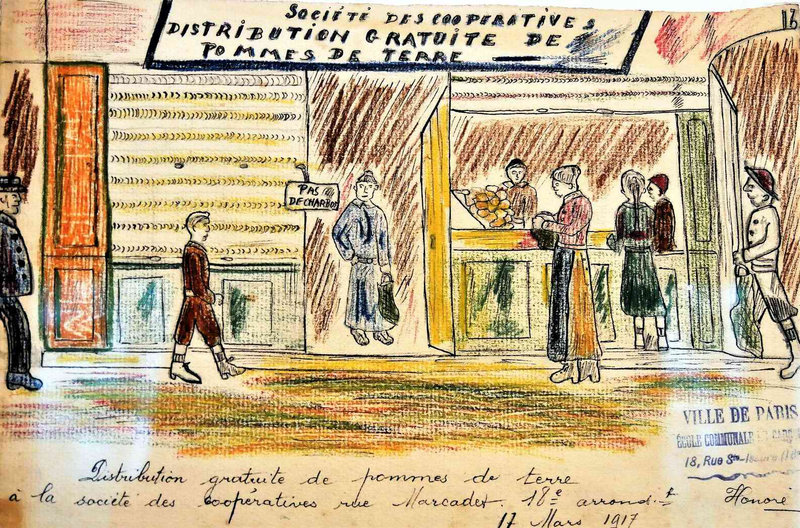 13
SOCIÉTÉ DES COOPERATIVES
DISTRIBUTION GRATUITE DE
POMMES DE TERRE
PAS
DECHARBON
VILLE DE PARIS
ÉCOLE COMMUNALE
18, Rue Ste-Isaure
Distribution gratuite de pommes de terre
à la société des coopératives rue Marcadet. 18e arrondit Honoré
17 Mars 1917